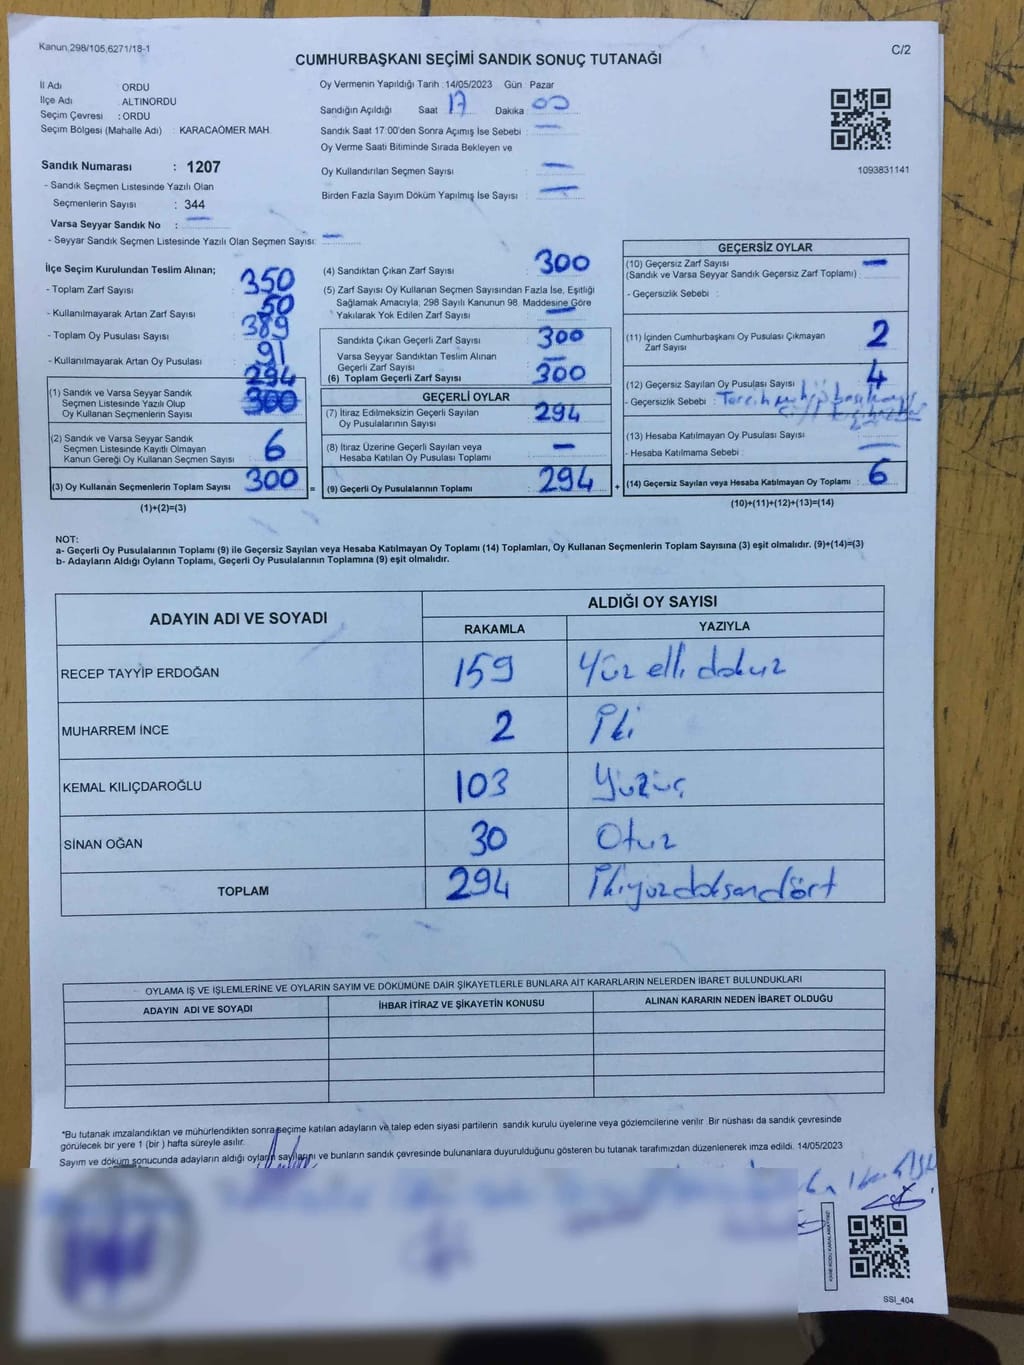 Kanun,298/105,6271/18-1
C/2
CUMHURBAŞKANI SEÇİMİ SANDIK SONUÇ TUTANAĞI
İl Adı : ORDU
İlçe Adı : ALTINORDU
Seçim Çevresi : ORDU
Seçim Bölgesi (Mahalle Adı) : KARACAÖMER MAH.
Sandık Numarası : 1207
- Sandık Seçmen Listesinde Yazılı Olan
Seçmenlerin Sayısı : 344
Varsa Seyyar Sandık No : —
- Seyyar Sandık Seçmen Listesinde Yazılı Olan Seçmen Sayısı: —
Oy Vermenin Yapıldığı Tarih : 14/05/2023 Gün Pazar
Sandığın Açıldığı Saat 17 Dakika 00
Sandık Saat 17:00'den Sonra Açımış İse Sebebi : —
Oy Verme Saati Bitiminde Sırada Bekleyen ve
Oy Kullandırılan Seçmen Sayısı : —
Birden Fazla Sayım Döküm Yapılmış İse Sayısı : —
1093831141
İlçe Seçim Kurulundan Teslim Alınan;
- Toplam Zarf Sayısı : 350
- Kullanılmayarak Artan Zarf Sayısı : 50
- Toplam Oy Pusulası Sayısı : 389
- Kullanılmayarak Artan Oy Pusulası : 91
(1) Sandık ve Varsa Seyyar Sandık
Seçmen Listesinde Yazılı Olup
Oy Kullanan Seçmenlerin Sayısı : 294
300
(2) Sandık ve Varsa Seyyar Sandık
Seçmen Listesinde Kayıtlı Olmayan
Kanun Gereği Oy Kullanan Seçmen Sayısı : 6
(3) Oy Kullanan Seçmenlerin Toplam Sayısı : 300
(1)+(2)=(3)
=
(4) Sandıktan Çıkan Zarf Sayısı : 300
(5) Zarf Sayısı Oy Kullanan Seçmen Sayısından Fazla İse, Eşitliği
Sağlamak Amacıyla; 298 Sayılı Kanunun 98. Maddesine Göre
Yakılarak Yok Edilen Zarf Sayısı : —
Sandıkta Çıkan Geçerli Zarf Sayısı : 300
Varsa Seyyar Sandıktan Teslim Alınan
Geçerli Zarf Sayısı : —
(6) Toplam Geçerli Zarf Sayısı : 300
GEÇERLİ OYLAR
(7) İtiraz Edilmeksizin Geçerli Sayılan
Oy Pusulalarının Sayısı : 294
(8) İtiraz Üzerine Geçerli Sayılan veya
Hesaba Katılan Oy Pusulası Toplamı : —
(9) Geçerli Oy Pusulalarının Toplamı : 294
+
GEÇERSİZ OYLAR
(10) Geçersiz Zarf Sayısı
(Sandık ve Varsa Seyyar Sandık Geçersiz Zarf Toplamı) : —
- Geçersizlik Sebebi :
(11) İçinden Cumhurbaşkanı Oy Pusulası Çıkmayan
Zarf Sayısı : 2
(12) Geçersiz Sayılan Oy Pusulası Sayısı : 4
- Geçersizlik Sebebi : Tercih
(13) Hesaba Katılmayan Oy Pusulası Sayısı : —
- Hesaba Katılmama Sebebi :
(14) Geçersiz Sayılan veya Hesaba Katılmayan Oy Toplamı : 6
(10)+(11)+(12)+(13)=(14)
NOT:
a- Geçerli Oy Pusulalarının Toplamı (9) ile Geçersiz Sayılan veya Hesaba Katılmayan Oy Toplamı (14) Toplamları, Oy Kullanan Seçmenlerin Toplam Sayısına (3) eşit olmalıdır. (9)+(14)=(3)
b- Adayların Aldığı Oyların Toplamı, Geçerli Oy Pusulalarının Toplamına (9) eşit olmalıdır.
ADAYIN ADI VE SOYADI ALDIĞI OY SAYISI
RAKAMLA YAZIYLA
RECEP TAYYİP ERDOĞAN 159 Yüz elli dokuz
MUHARREM İNCE 2 İki
KEMAL KILIÇDAROĞLU 103 Yüzüç
SİNAN OĞAN 30 Otuz
TOPLAM 294 İkiyüzdoksandört
OYLAMA İŞ VE İŞLEMLERİNE VE OYLARIN SAYIM VE DÖKÜMÜNE DAİR ŞİKAYETLERLE BUNLARA AİT KARARLARIN NELERDEN İBARET BULUNDUKLARI
ADAYIN ADI VE SOYADI İHBAR İTİRAZ VE ŞİKAYETİN KONUSU ALINAN KARARIN NEDEN İBARET OLDUĞU
*Bu tutanak imzalandıktan ve mühürlendikten sonra seçime katılan adayların ve talep eden siyasi partilerin sandık kurulu üyelerine veya gözlemcilerine verilir. Bir nüshası da sandık çevresinde
görülecek bir yere 1 (bir ) hafta süreyle asılır.
Sayım ve döküm sonucunda adayların aldığı oyların sayılarını ve bunların sandık çevresinde bulunanlara duyurulduğunu gösteren bu tutanak tarafımızdan düzenlenerek imza edildi. 14/05/2023
SSİ_404